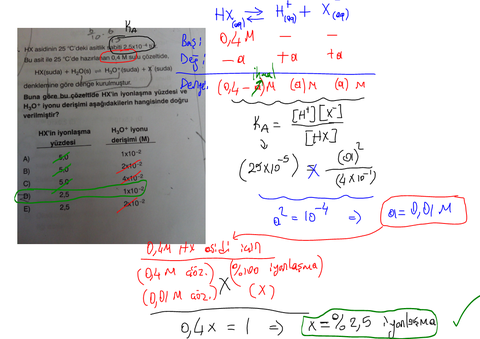 K_A
HX asidinin 25 °C'deki asitlik sabiti 2,5x10⁻⁴ tür.
Bu asit ile 25 °C'de hazırlanan 0,4 M sulu çözeltide,
HX(suda) + H₂O(s) ⇌ H₃O⁺(suda) + X⁻(suda)
denklemine göre denge kurulmuştur.
Buna göre bu çözeltide HX'in iyonlaşma yüzdesi ve
H₃O⁺ iyonu derişimi aşağıdakilerin hangisinde doğru
verilmiştir?
HX'in iyonlaşma yüzdesi H₃O⁺ iyonu derişimi (M)
A) 5,0 1x10⁻²
B) 5,0 2x10⁻²
C) 5,0 4x10⁻²
D) 2,5 1x10⁻²
E) 2,5 2x10⁻²
HX(aq) ⇌ H⁺(aq) + X⁻(aq)
Baş: 0,4M - -
Değ: -a +a +a
Denge: (0,4 - a)M (a)M (a)M
ihmal
K_A = [H⁺][X⁻] / [HX]
(25x10⁻⁵) = (a)² / (4x10⁻¹)
a² = 10⁻⁴ ⇒ a = 0,01 M
0,4M HX asidi için
(0,4M çöz.) (%100 iyonlaşma)
(0,01M çöz.) X (X)
0,4x = 1 ⇒ x = %2,5 iyonlaşma